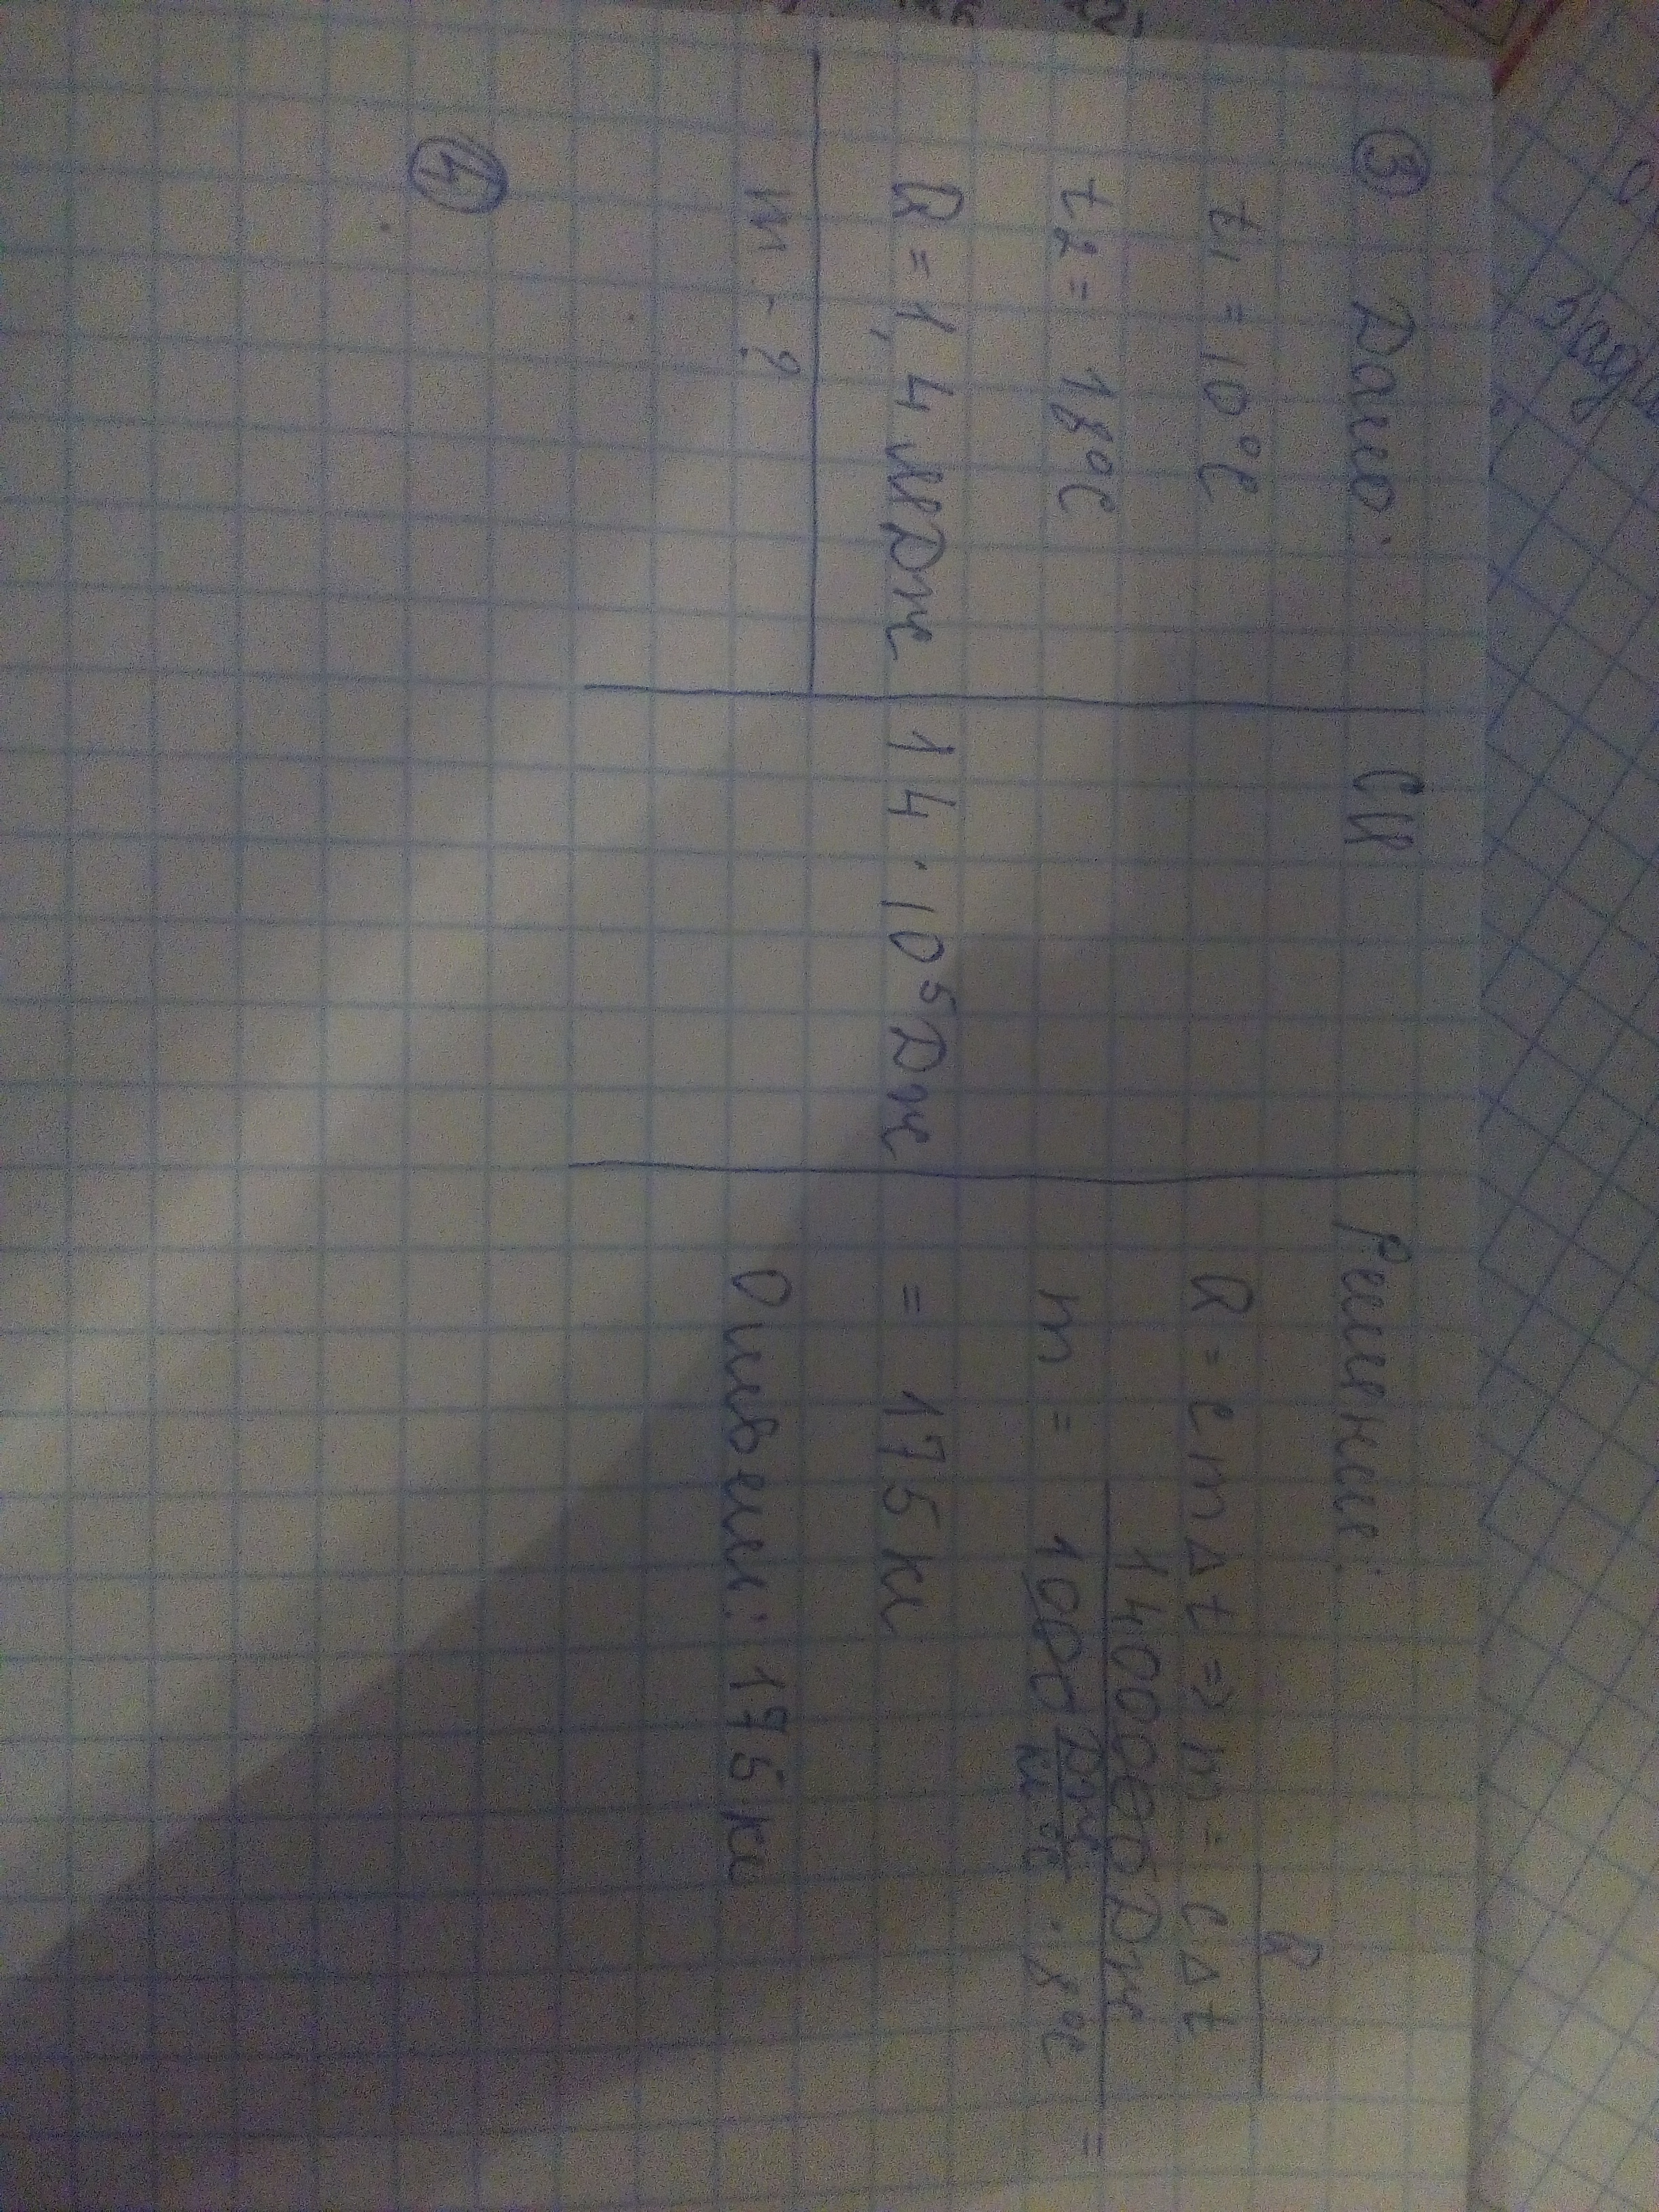 ③ Дано:
t₁ = 10°C
t₂ = 18°C
Q = 1,4 МДж
m - ?
СИ
14 · 10⁵ Дж
Решение:
Q = cm∆t => m = Q / c∆t
m = 1400000 Дж / 1000 Дж/кг°C · 8°C =
= 175 кг
Ответ: 175 кг
④
Задач